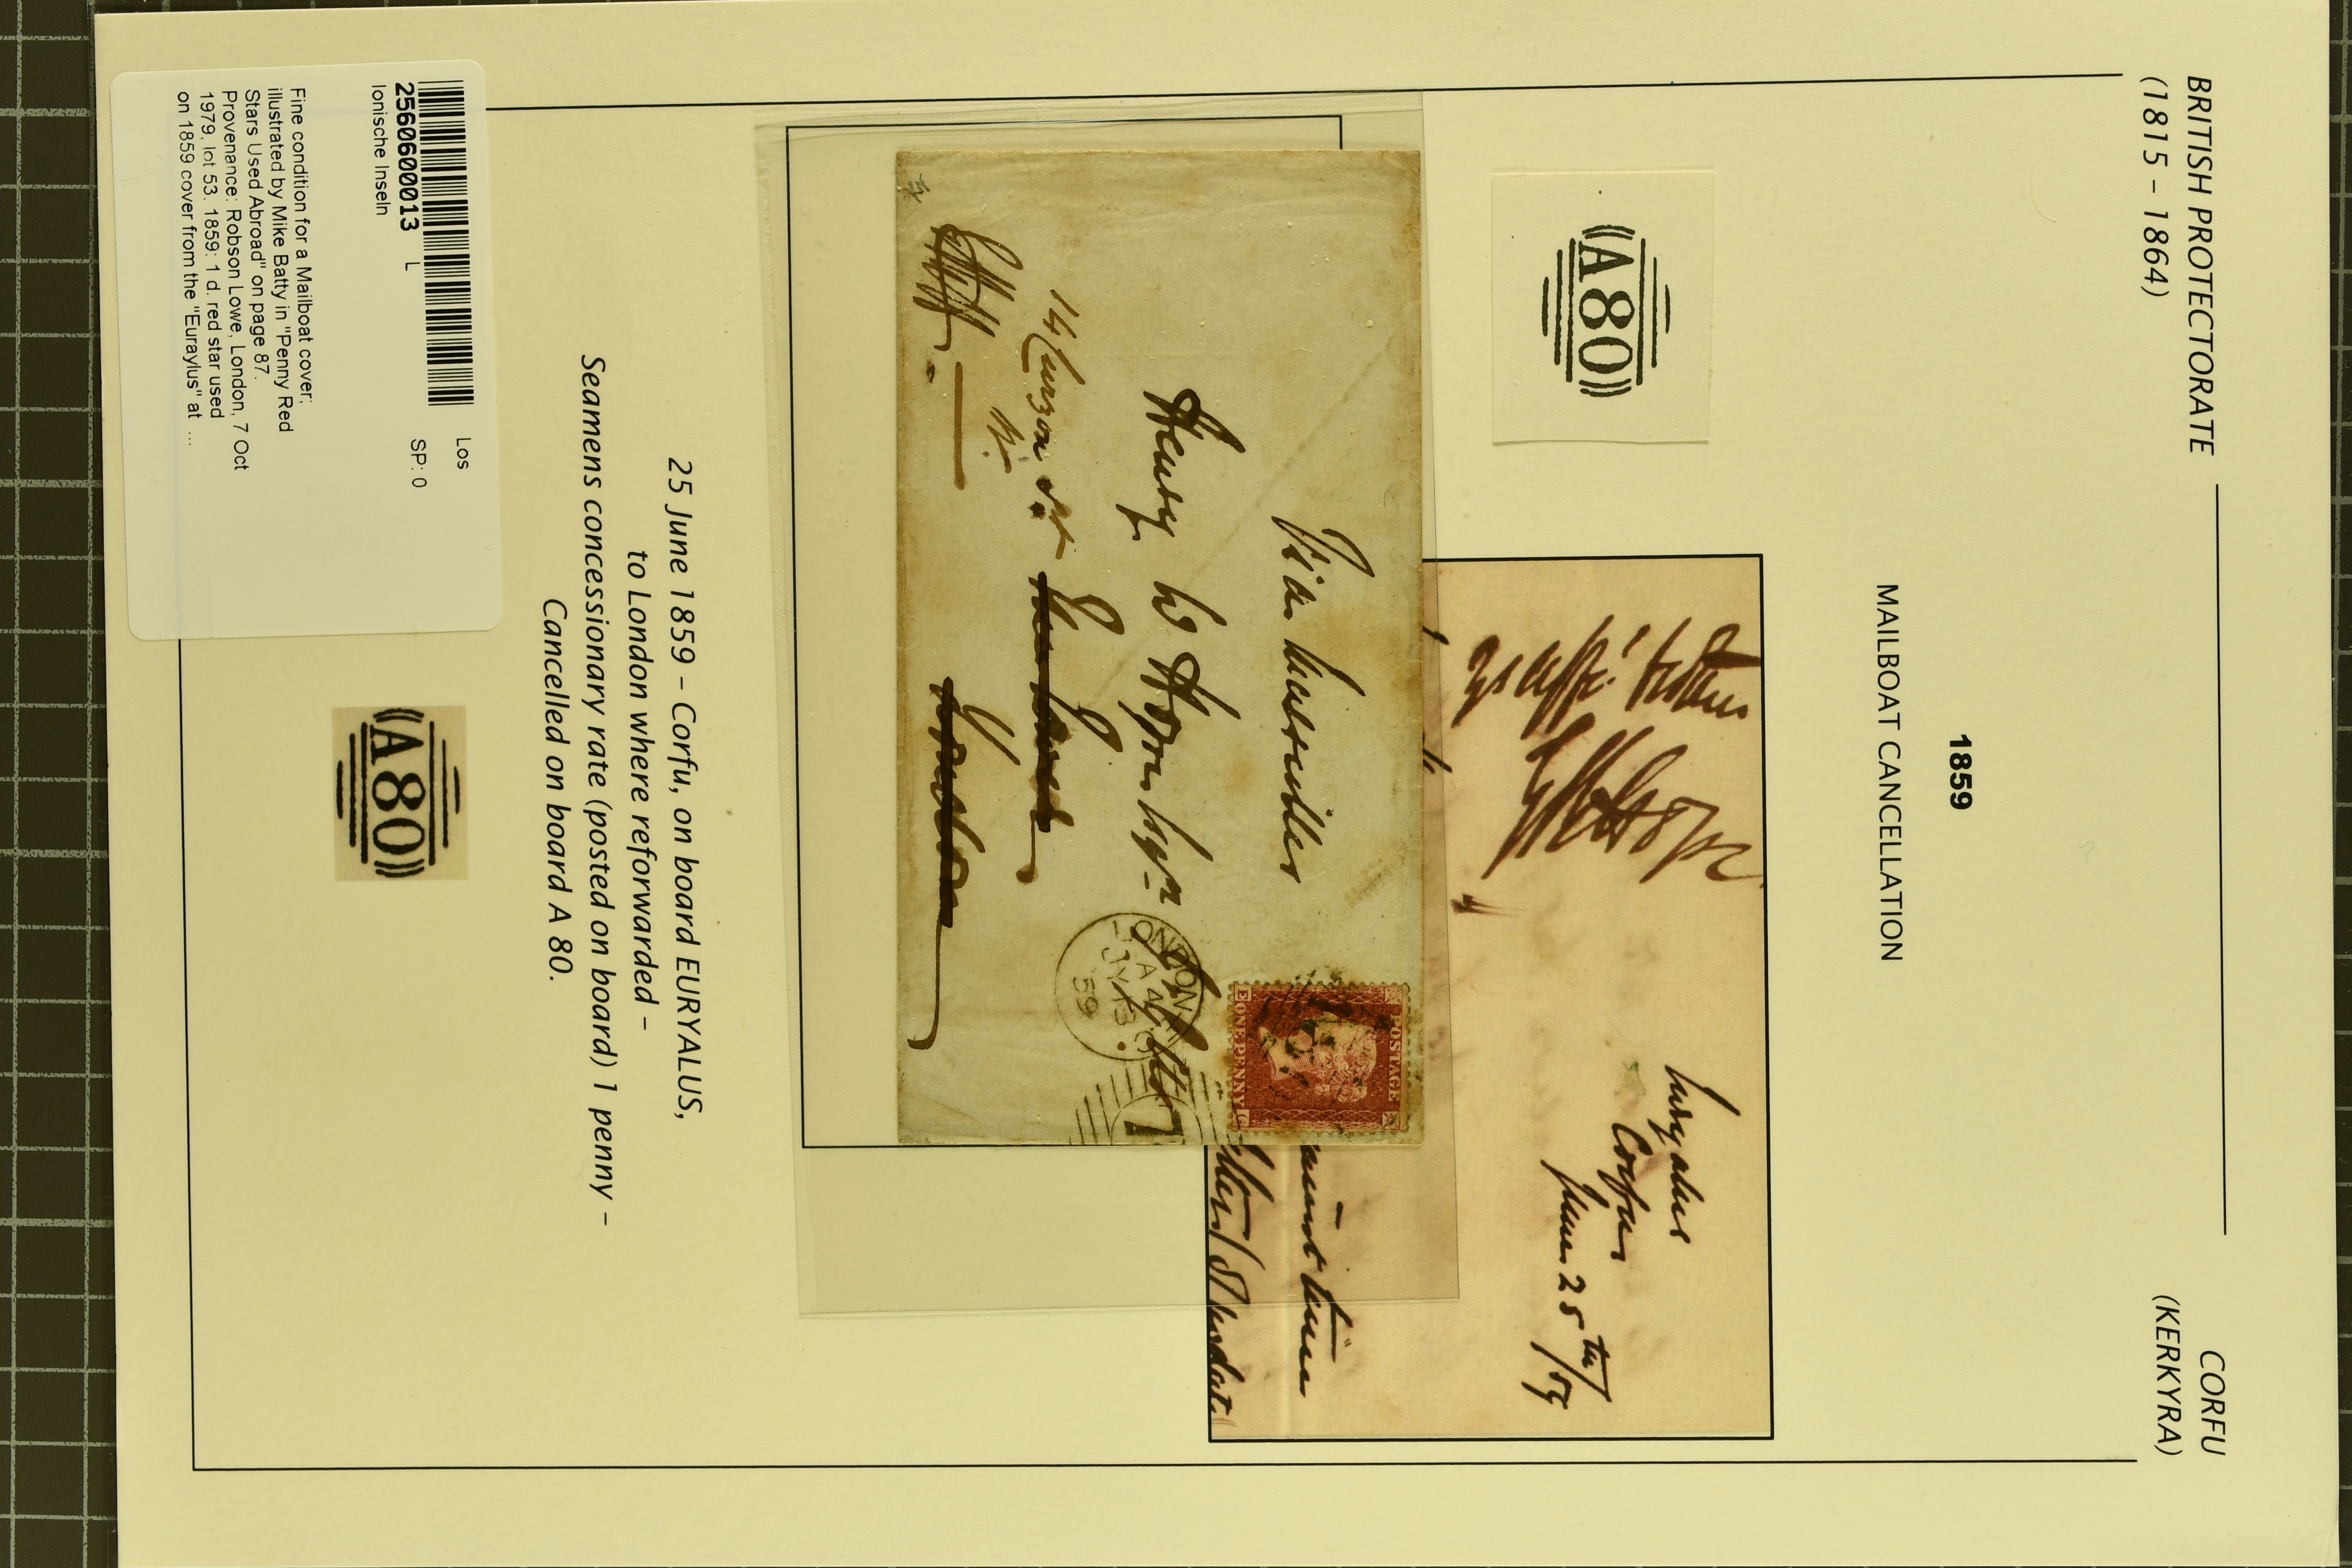 BRITISH PROTECTORATE
(1815 – 1864)
CORFU
(KERKYRA)
1859
MAILBOAT CANCELLATION
(A80)
Euryalus
Corfu
June 25th/59
Via Marseilles
Henry W Hope Esqre
14 Curzon St
London
LONDON
A
JY
59
7
POSTAGE
ONE PENNY
25 June 1859 – Corfu, on board EURYALUS,
to London where reforwarded –
Seamens concessionary rate (posted on board) 1 penny –
Cancelled on board A 80.
(A80)
Los
2560600013 L
SP: 0
Ionische Inseln
Fine condition for a Mailboat cover;
illustrated by Mike Batty in "Penny Red
Stars Used Abroad" on page 87.
Provenance: Robson Lowe, London, 7 Oct
1979, lot 53. 1859: 1 d. red star used
on 1859 cover from the "Euraylus" at ...